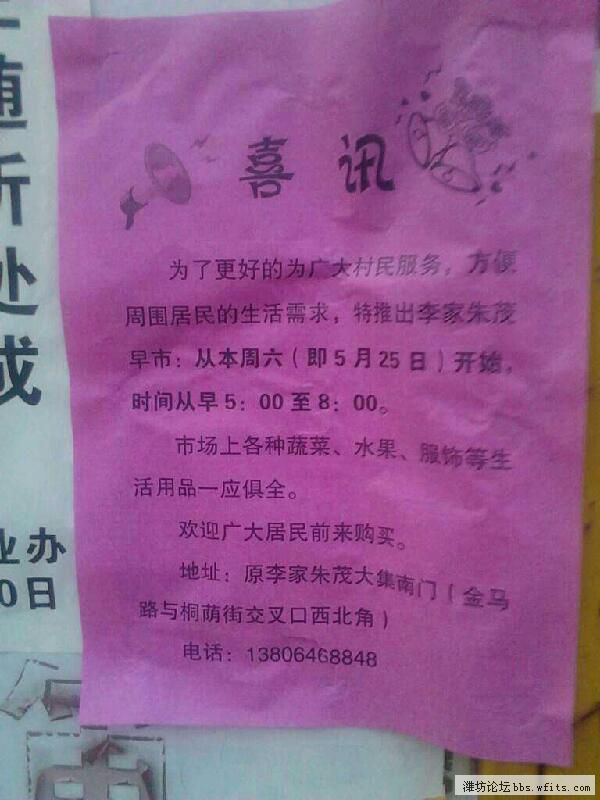 随
所
处
成
业办
0日
喜讯
为了更好的为广大村民服务，方便
周围居民的生活需求，特推出李家朱茂
早市：从本周六（即5月25日）开始，
时间从早5：00至8：00。
市场上各种蔬菜、水果、服饰等生
活用品一应俱全。
欢迎广大居民前来购买。
地址：原李家朱茂大集南门（金马
路与桐荫街交叉口西北角）
电话：13806468848
潍坊论坛bbs.wfits.com